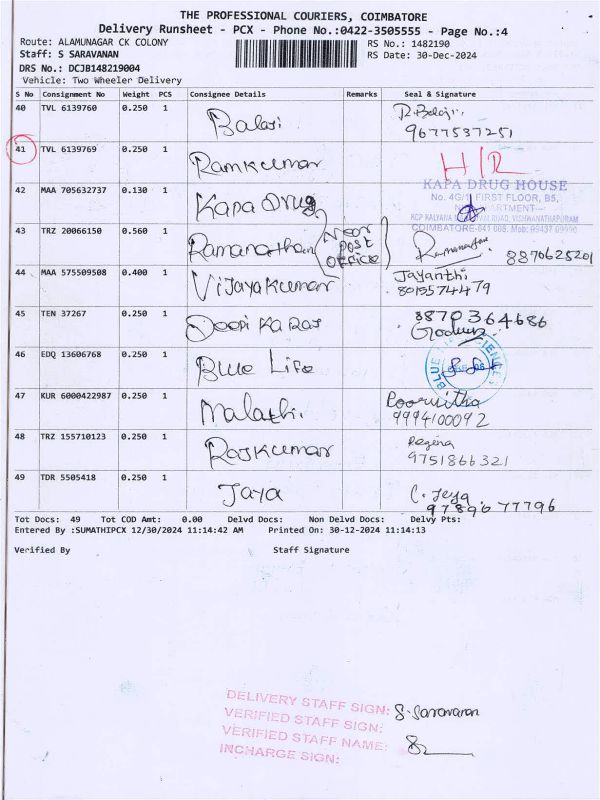 THE PROFESSIONAL COURIERS, COIMBATORE
Delivery Runsheet - PCX - Phone No.:0422-3505555 - Page No.:4
Route: ALAMUNAGAR CK COLONY
RS No.: 1482190
Staff: S SARAVANAN
RS Date: 30-Dec-2024
DRS No.: DCJB148219004
Vehicle: Two Wheeler Delivery
S No Consignment No Weight PCS Consignee Details Remarks Seal & Signature
40 TVL 6139760 0.250 1 Balaji R. Balaji
9677537251
41 TVL 6139769 0.250 1 Ramkumar H/R
42 MAA 705632737 0.130 1 Kapa Drug
KAPA DRUG HOUSE
No. 4G/1, FIRST FLOOR, B5,
KCP KALYANA VISHWANATHAPURAM
COIMBATORE-641 008. Mob: 99437 09990
43 TRZ 20066150 0.560 1 Ramanathan Near Post Office Ramanathan 8870625201
44 MAA 575509508 0.400 1 Vijayakumar Jayanthi
8015574479
45 TEN 37267 0.250 1 8870364686
46 EDQ 13606768 0.250 1 Blue Life
47 KUR 6000422987 0.250 1 Malathi Poorvitha
9994100092
48 TRZ 155710123 0.250 1 Rajkumar Regina
9751866321
49 TDR 5505418 0.250 1 Jaya C. Jeya
97896 77796
Tot Docs: 49 Tot COD Amt: 0.00 Delvd Docs: Non Delvd Docs: Delvy Pts:
Entered By :SUMATHIPCX 12/30/2024 11:14:42 AM Printed On: 30-12-2024 11:14:13
Verified By Staff Signature
DELIVERY STAFF SIGN: S. Saravanan
VERIFIED STAFF SIGN:
VERIFIED STAFF NAME:
INCHARGE SIGN: